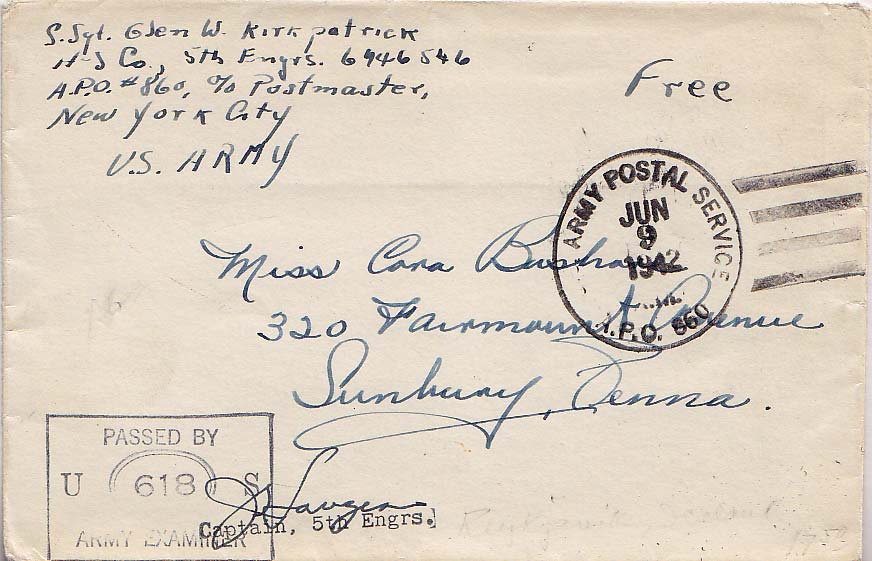 S.Sgt. Glen W. Kirkpatrick
H-S Co., 5th Engrs. 6946546
A.P.O. #860, c/o Postmaster,
New York City
U.S. ARMY
Free
ARMY POSTAL SERVICE
JUN
9
1942
A.P.O. 860
Miss Cora
320 Fairmount Avenue
Sunbury, Penna.
PASSED BY
U 618 S
ARMY EXAMINER
Captain, 5th Engrs.